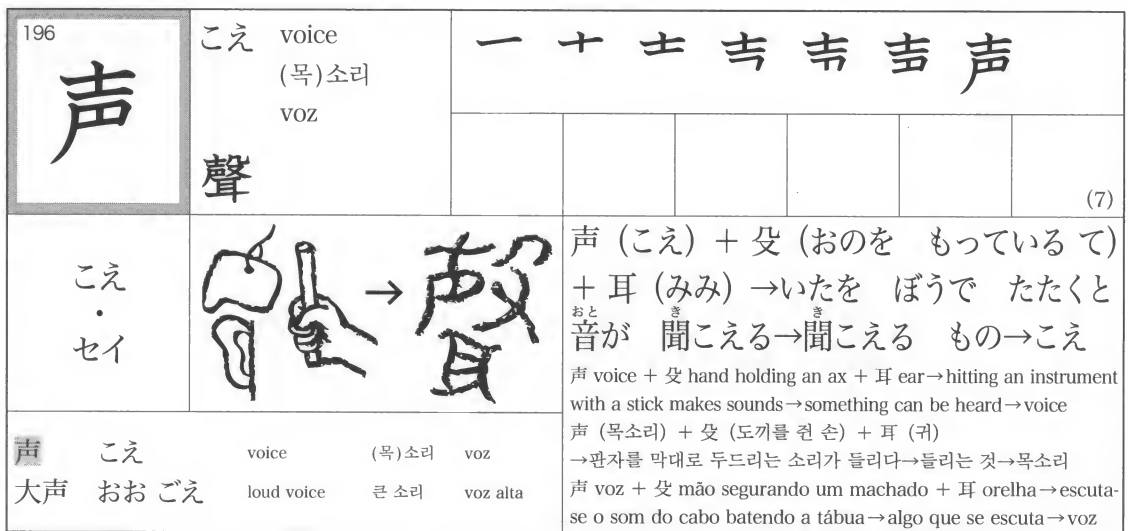 196
声
こえ voice
(목)소리
voz
聲
(7)
こえ
・
セイ
声(こえ)+ 殳(おのを もっている て)
+ 耳(みみ)→いたを ぼうで たたくと
おと き き
音が 聞こえる→聞こえる もの→こえ
声 voice + 殳 hand holding an ax + 耳 ear→hitting an instrument
with a stick makes sounds→something can be heard→voice
声 (목소리) + 殳 (도끼를 쥔 손) + 耳 (귀)
→판자를 막대로 두드리는 소리가 들리다→들리는 것→목소리
声 voz + 殳 mão segurando um machado + 耳 orelha→escuta-
se o som do cabo batendo a tábua→algo que se escuta→voz
声 こえ voice (목)소리 voz
大声 おお ごえ loud voice 큰 소리 voz alta